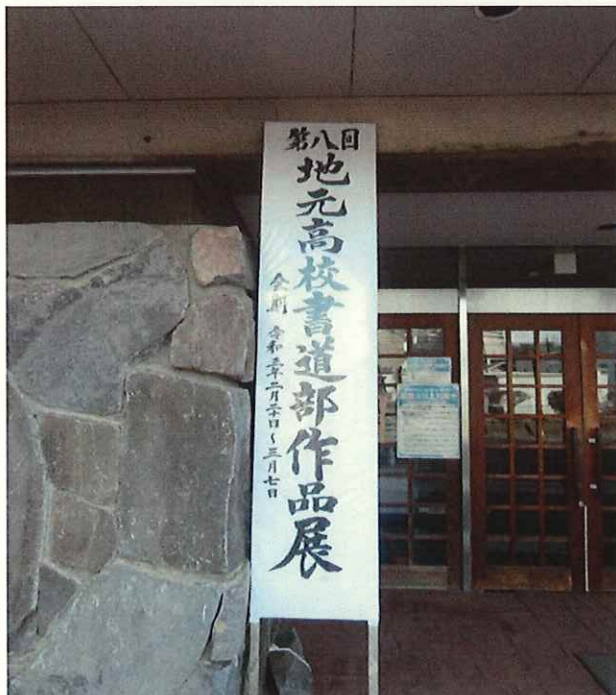 第八回
地元高校書道部作品展
会期 令和三年二月二十日～三月七日